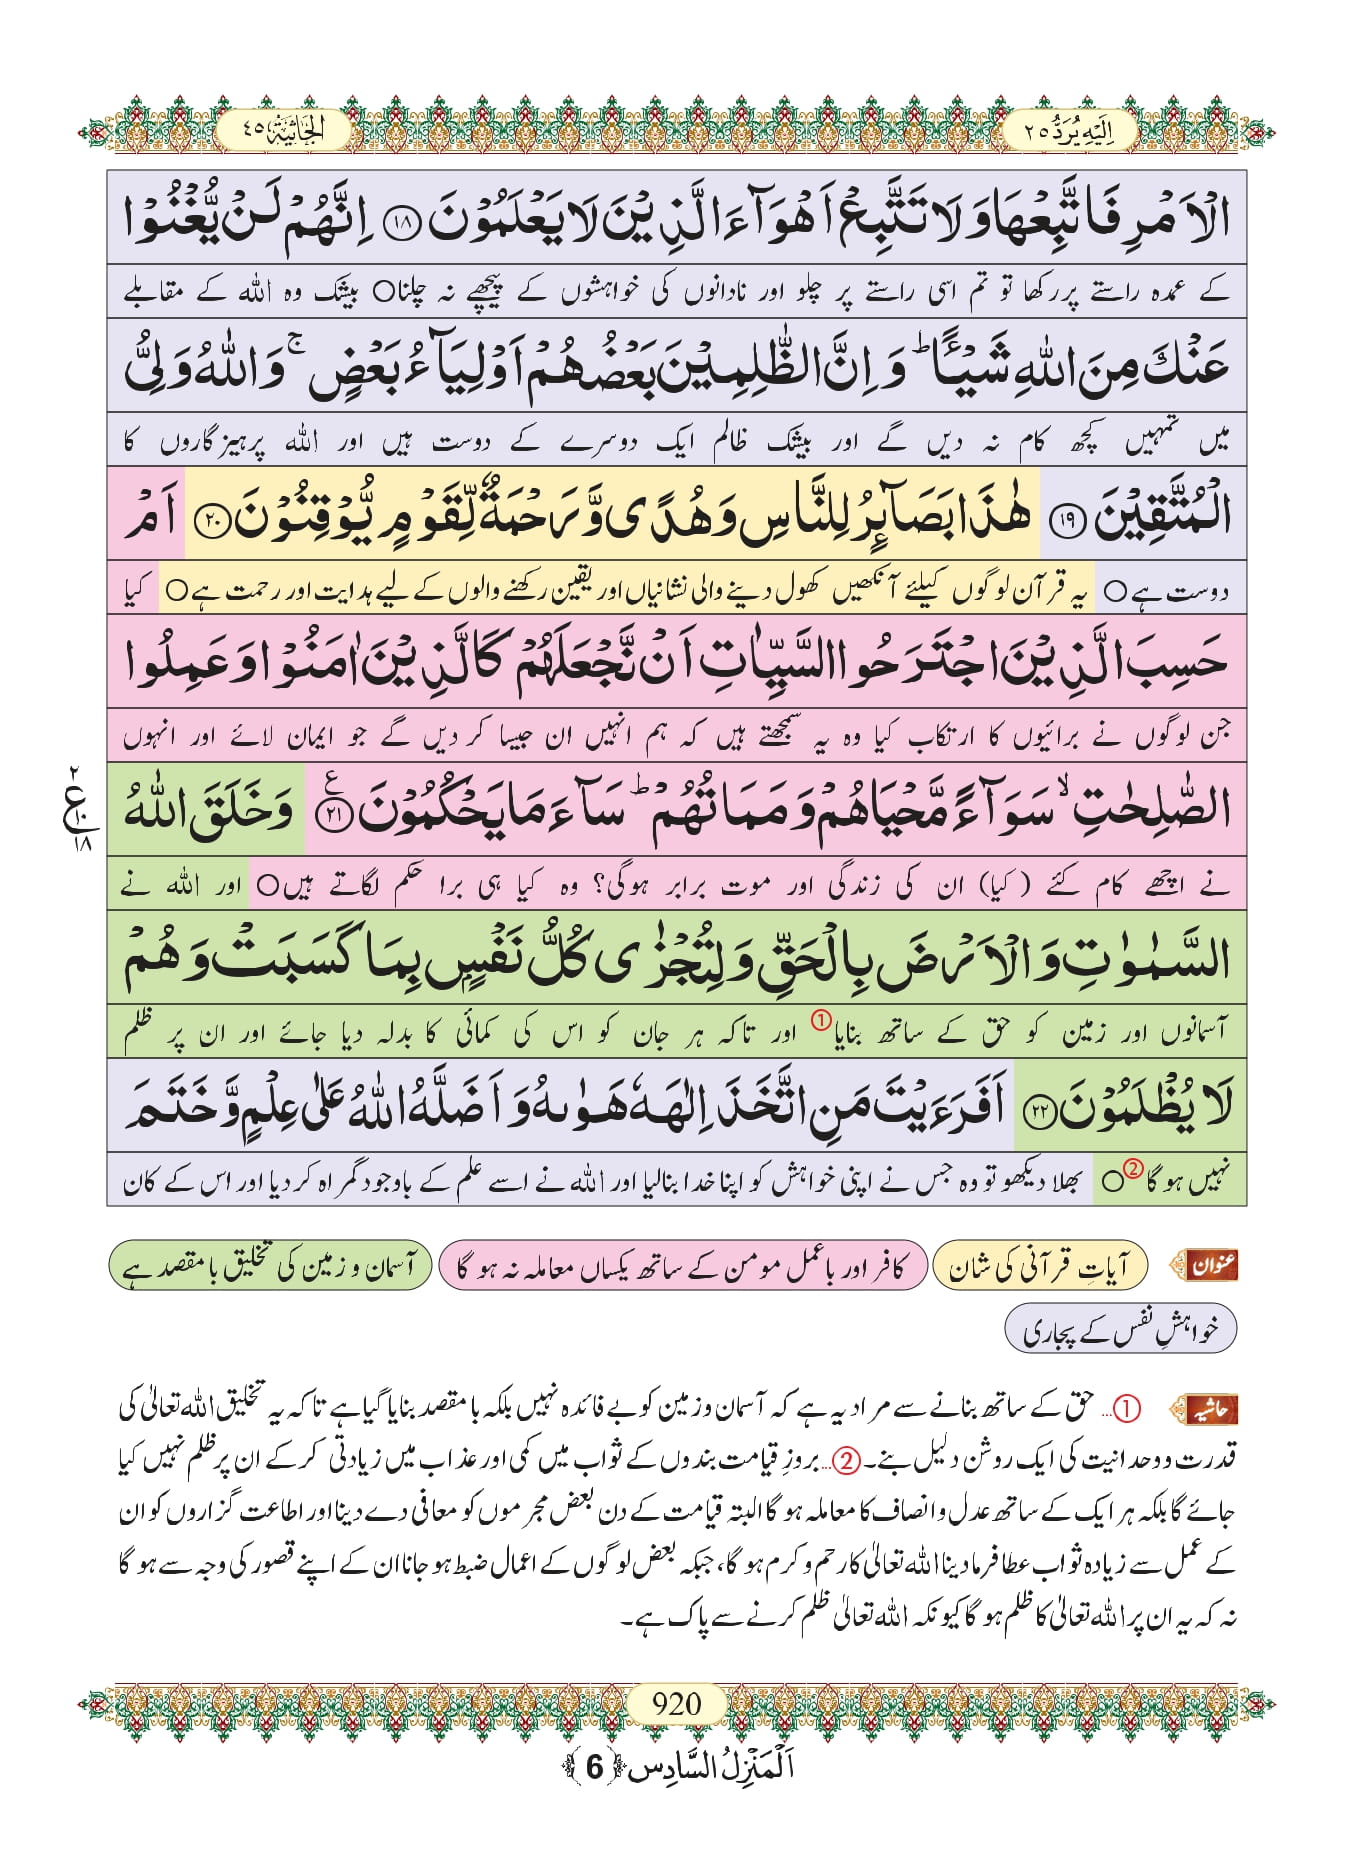 اِلَیْهِ یُرَدُّ ٢٥
الجَاثِیَة ٤٥
الْاَمْرِ فَاتَّبِعْهَا وَ لَا تَتَّبِـعْ اَهْوَآءَ الَّذِیْنَ لَا یَعْلَمُوْنَ ﴿۱۸﴾ اِنَّهُمْ لَنْ یُّغْنُوْا
کے عمدہ راستے پر رکھا تو تم اسی راستے پر چلو اور نادانوں کی خواہشوں کے پیچھے نہ چلنا○ بیشک وہ اللہ کے مقابلے
عَنْكَ مِنَ اللّٰهِ شَیْــٴًـاؕ وَ اِنَّ الظّٰلِمِیْنَ بَعْضُهُمْ اَوْلِیَآءُ بَعْضٍۚ وَ اللّٰهُ وَلِیُّ
میں تمہیں کچھ کام نہ دیں گے اور بیشک ظالم ایک دوسرے کے دوست ہیں اور اللہ پرہیزگاروں کا
الْمُتَّقِیْنَ ﴿۱۹﴾ هٰذَا بَصَآىٕرُ لِلنَّاسِ وَ هُدًى وَّ رَحْمَةٌ لِّقَوْمٍ یُّوْقِنُوْنَ ﴿۲۰﴾ اَمْ
دوست ہے○ یہ قرآن لوگوں کیلئے آنکھیں کھول دینے والی نشانیاں اور یقین رکھنے والوں کے لیے ہدایت اور رحمت ہے○ کیا
حَسِبَ الَّذِیْنَ اجْتَرَحُوا السَّیِّاٰتِ اَنْ نَّجْعَلَهُمْ كَالَّذِیْنَ اٰمَنُوْا وَ عَمِلُوا
جن لوگوں نے برائیوں کا ارتکاب کیا وہ یہ سمجھتے ہیں کہ ہم انہیں ان جیسا کر دیں گے جو ایمان لائے اور انہوں
الصّٰلِحٰتِۙ سَوَآءً مَّحْیَاهُمْ وَ مَمَاتُهُمْؕ سَآءَ مَا یَحْكُمُوْنَ۠ ﴿۲۱﴾ وَ خَلَقَ اللّٰهُ
٢
ع
١٠
١٨
نے اچھے کام کئے (کیا) ان کی زندگی اور موت برابر ہوگی؟ وہ کیا ہی برا حکم لگاتے ہیں○ اور اللہ نے
السَّمٰوٰتِ وَ الْاَرْضَ بِالْحَقِّ وَ لِتُجْزٰى كُلُّ نَفْسٍۭ بِمَا كَسَبَتْ وَ هُمْ
آسمانوں اور زمین کو حق کے ساتھ بنایا① اور تاکہ ہر جان کو اس کی کمائی کا بدلہ دیا جائے اور ان پر ظلم
لَا یُظْلَمُوْنَ ﴿۲۲﴾ اَفَرَءَیْتَ مَنِ اتَّخَذَ اِلٰهَهٗ هَوٰىهُ وَ اَضَلَّهُ اللّٰهُ عَلٰى عِلْمٍ وَّ خَتَمَ
نہیں ہوگا②○ بھلا دیکھو تو وہ جس نے اپنی خواہش کو اپنا خدا بنالیا اور اللہ نے اسے علم کے باوجود گمراہ کردیا اور اس کے کان
عنوان آیاتِ قرآنی کی شان کافر اور باعمل مومن کے ساتھ یکساں معاملہ نہ ہوگا آسمان و زمین کی تخلیق بامقصد ہے
خواہشِ نفس کے پجاری
حاشیہ ①... حق کے ساتھ بنانے سے مراد یہ ہے کہ آسمان و زمین کو بے فائدہ نہیں بلکہ بامقصد بنایا گیا ہے تاکہ یہ تخلیق اللہ تعالیٰ کی
قدرت و وحدانیت کی ایک روشن دلیل بنے۔ ②... بروزِ قیامت بندوں کے ثواب میں کمی اور عذاب میں زیادتی کرکے ان پر ظلم نہیں کیا
جائے گا بلکہ ہر ایک کے ساتھ عدل و انصاف کا معاملہ ہوگا البتہ قیامت کے دن بعض مجرموں کو معافی دے دینا اور اطاعت گزاروں کو ان
کے عمل سے زیادہ ثواب عطا فرما دینا اللہ تعالیٰ کا رحم و کرم ہوگا، جبکہ بعض لوگوں کے اعمال ضبط ہو جانا ان کے اپنے قصور کی وجہ سے ہوگا
نہ کہ یہ ان پر اللہ تعالیٰ کا ظلم ہوگا کیونکہ اللہ تعالیٰ ظلم کرنے سے پاک ہے۔
920
اَلْمَنْزِلُ السَّادِس ﴿6﴾